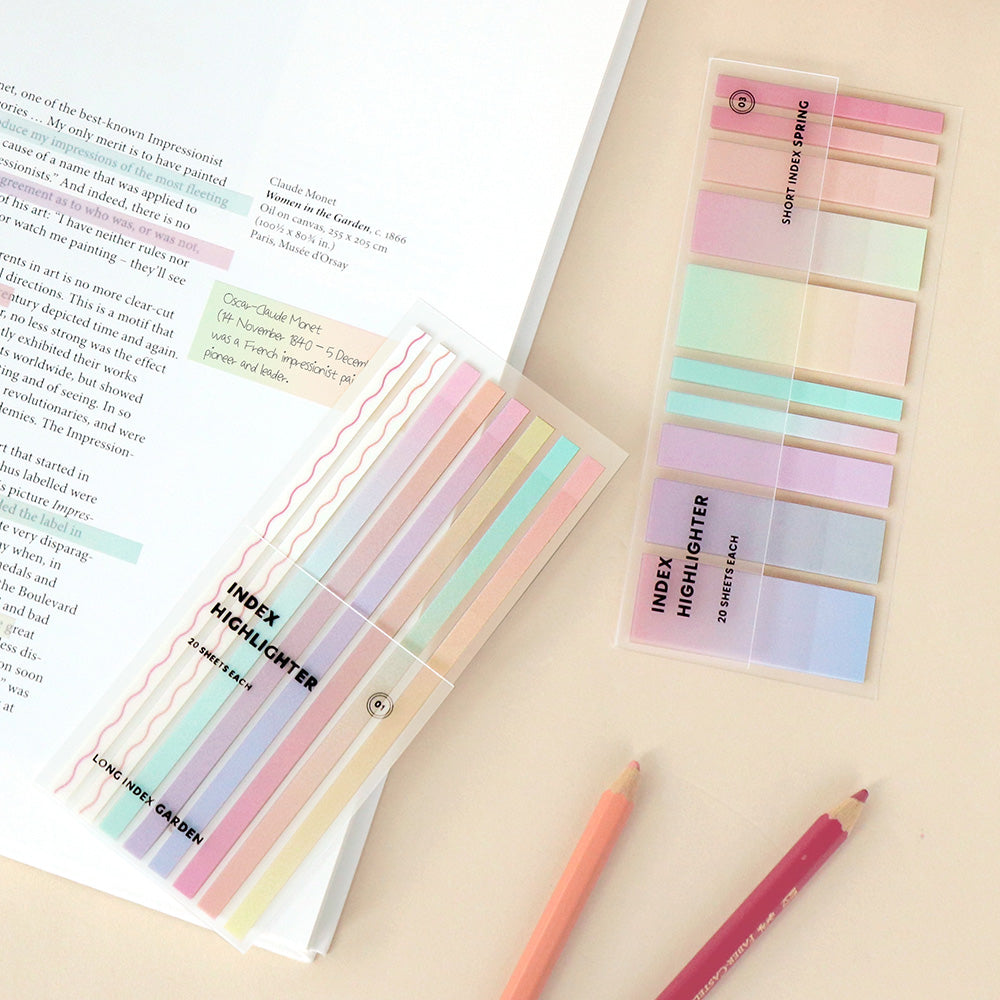 net, one of the best-known Impressionist
ories ... My only merit is to have painted
oduce my impressions of the most fleeting
cause of a name that was applied to
essionists." And indeed, there is no
agreement as to who was, or was not,
of his art: "I have neither rules nor
or watch me painting – they'll see
rents in art is no more clear-cut
l directions. This is a motif that
entury depicted time and again.
r, no less strong was the effect
tly exhibited their works
ts worldwide, but showed
ting and of seeing. In so
revolutionaries, and were
demies. The Impression-
rt that started in
hus labelled were
s picture Impres-
led the label in
te very disparag-
y when, in
nedals and
he Boulevard
and bad
great
less dis-
on soon
" was
at
Claude Monet
Women in the Garden, c. 1866
Oil on canvas, 255 x 205 cm
(100½ x 80¾ in.)
Paris, Musée d'Orsay
Oscar-Claude Monet
(14 November 1840 – 5 Decem
was a French impressionist pai
pioneer and leader.
INDEX
HIGHLIGHTER
20 SHEETS EACH
01
LONG INDEX GARDEN
03
SHORT INDEX SPRING
INDEX
HIGHLIGHTER
20 SHEETS EACH
FABER-CASTELL